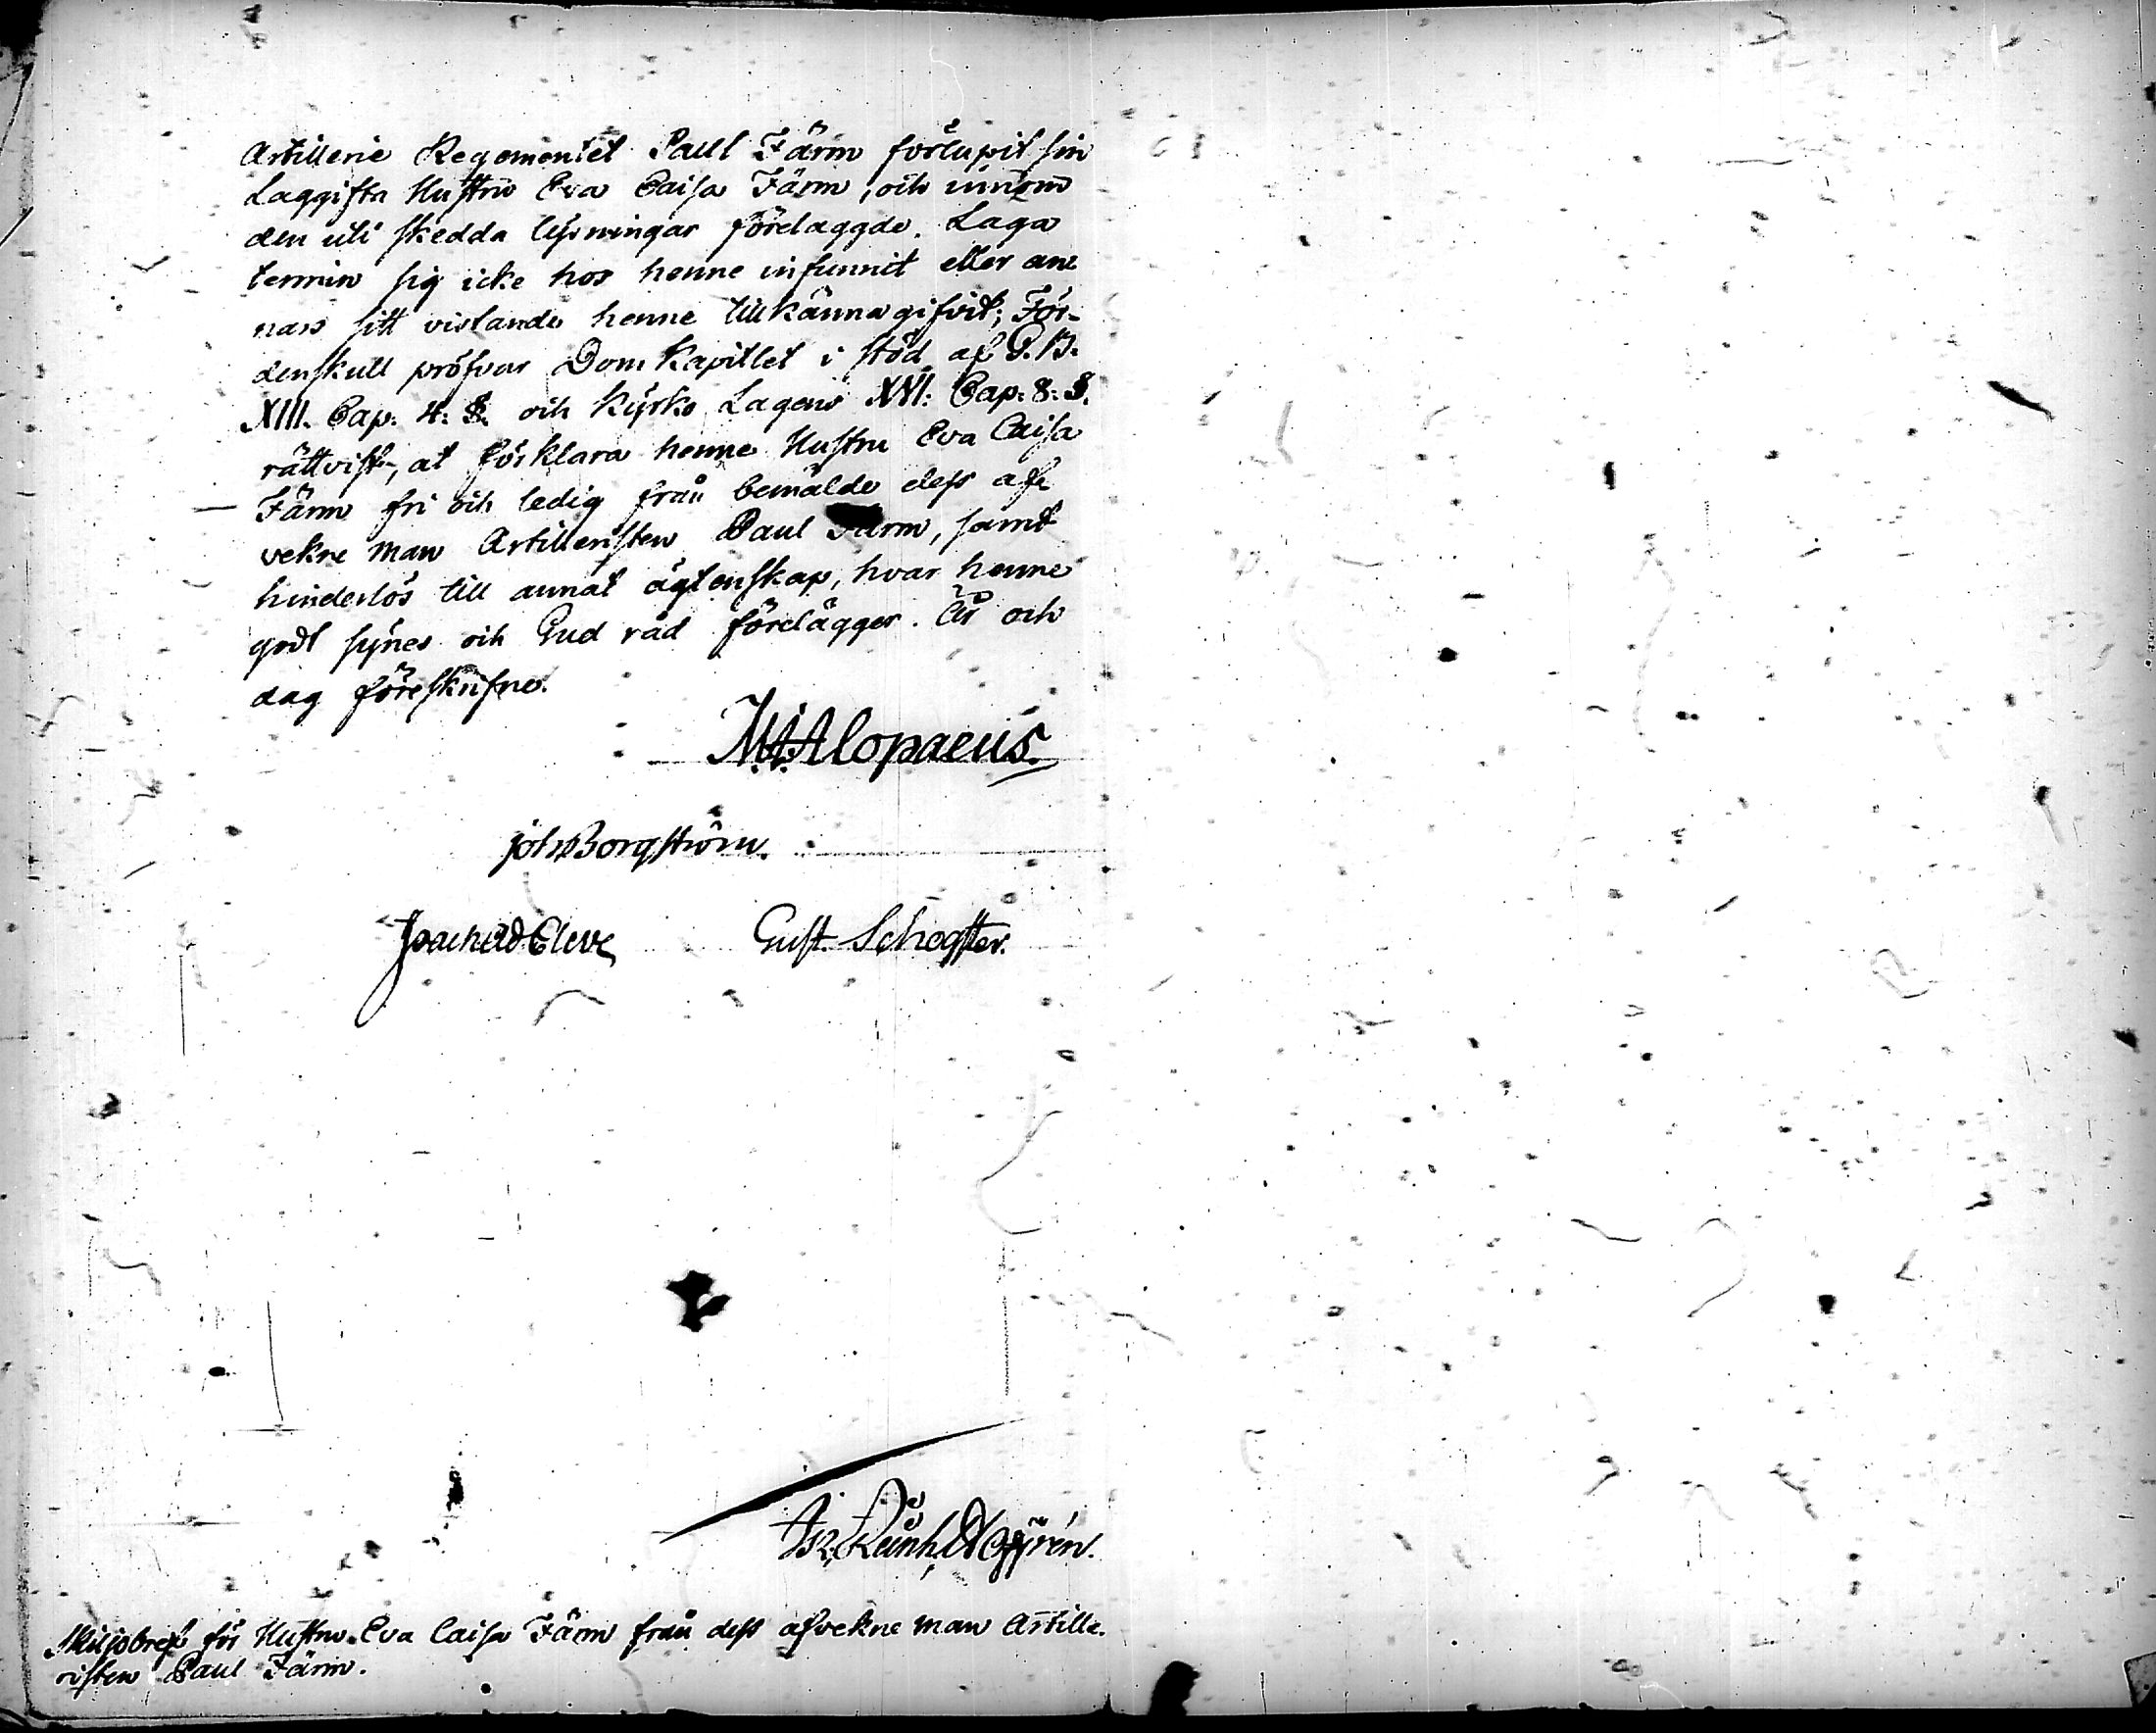 Artillerie Regementet Paul Färm förlupit sin
Laggifta Hustru Eva Caisa Färm, och innom
den uti skedda lysningar förelaggde. Laga
termin sig icke hos henne infunnit eller an-
nars sitt vistande henne tillkännagifvit; För-
denskull pröfvar Dom Kapitlet i stöd af G. B.
XIII. Cap. 4: §. och Kyrko Lagens XVI: Cap: 8: §.
rättvist, at förklara henne Hustru Eva Caisa
Färm fri och ledig från bemälde dess af-
vekne man Artilleristen Paul Färm, samt
hinderlös till annat ägtenskap, hvar henne
godt synes och Gud råd förelägger. År och
dag föreskrifne.
M. Alopaeus.
Joh. Borgström.
Joach. Ad. Cleve
Gust. Schogster.
Reinh.
Skiljobref för Hustru Eva Caisa Färm från dess afvekne man Artille-
risten Paul Färm.